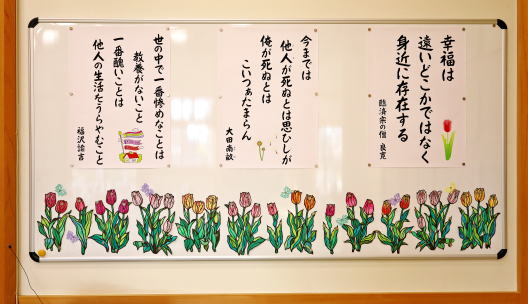 幸福は
遠いどこかではなく
身近に存在する
臨済宗の僧 良寛
今までは
他人が死ぬとは思ひしが
俺が死ぬとは
こいつぁたまらん
大田南畝
世の中で一番惨めなことは
教養がないこと
一番醜いことは
他人の生活をうらやむこと
福沢諭吉